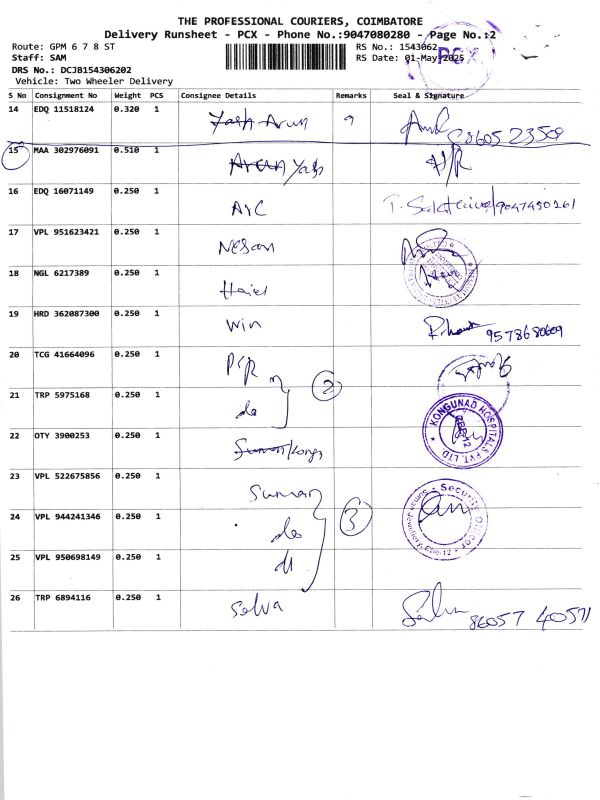 THE PROFESSIONAL COURIERS, COIMBATORE
Delivery Runsheet - PCX - Phone No.:9047080280 - Page No.:2
Route: GPM 6 7 8 ST
RS No.: 1543062
Staff: SAM
RS Date: 01-May-2025
PCX
DRS No.: DCJB154306202
Vehicle: Two Wheeler Delivery
S No Consignment No Weight PCS Consignee Details Remarks Seal & Signature
14 EDQ 11518124 0.320 1 Yash Arun
15 MAA 302976091 0.510 1 Arun Yash
16 EDQ 16071149 0.250 1 9047450261
17 VPL 951623421 0.250 1 Nelson
18 NGL 6217389 0.250 1
19 HRD 362087300 0.250 1 Win 9578680609
20 TCG 41664096 0.250 1
21 TRP 5975168 0.250 1 do 2
KONGUNAD HOSPITALS PVT. LTD.
22 OTY 3900253 0.250 1
23 VPL 522675856 0.250 1 Suman
24 VPL 944241346 0.250 1 do 3
Security Officer
25 VPL 950698149 0.250 1
26 TRP 6894116 0.250 1 Selva 86057 40571